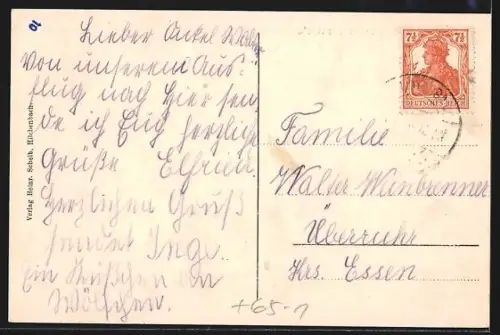 10
Lieber Onkel Walter
Von unserem Aus-
flug nach hier sen-
de ich Euch herzliche
Grüße Elfriede.
Herzlichen Gruß
sendet Inge.
Ein Küßchen an
Verlag Heinr. Scheib, Hilchenbach
7½ 7½
DEUTSCHES REICH
Familie
Walter
Überruhr
Krs. Essen
+65-1